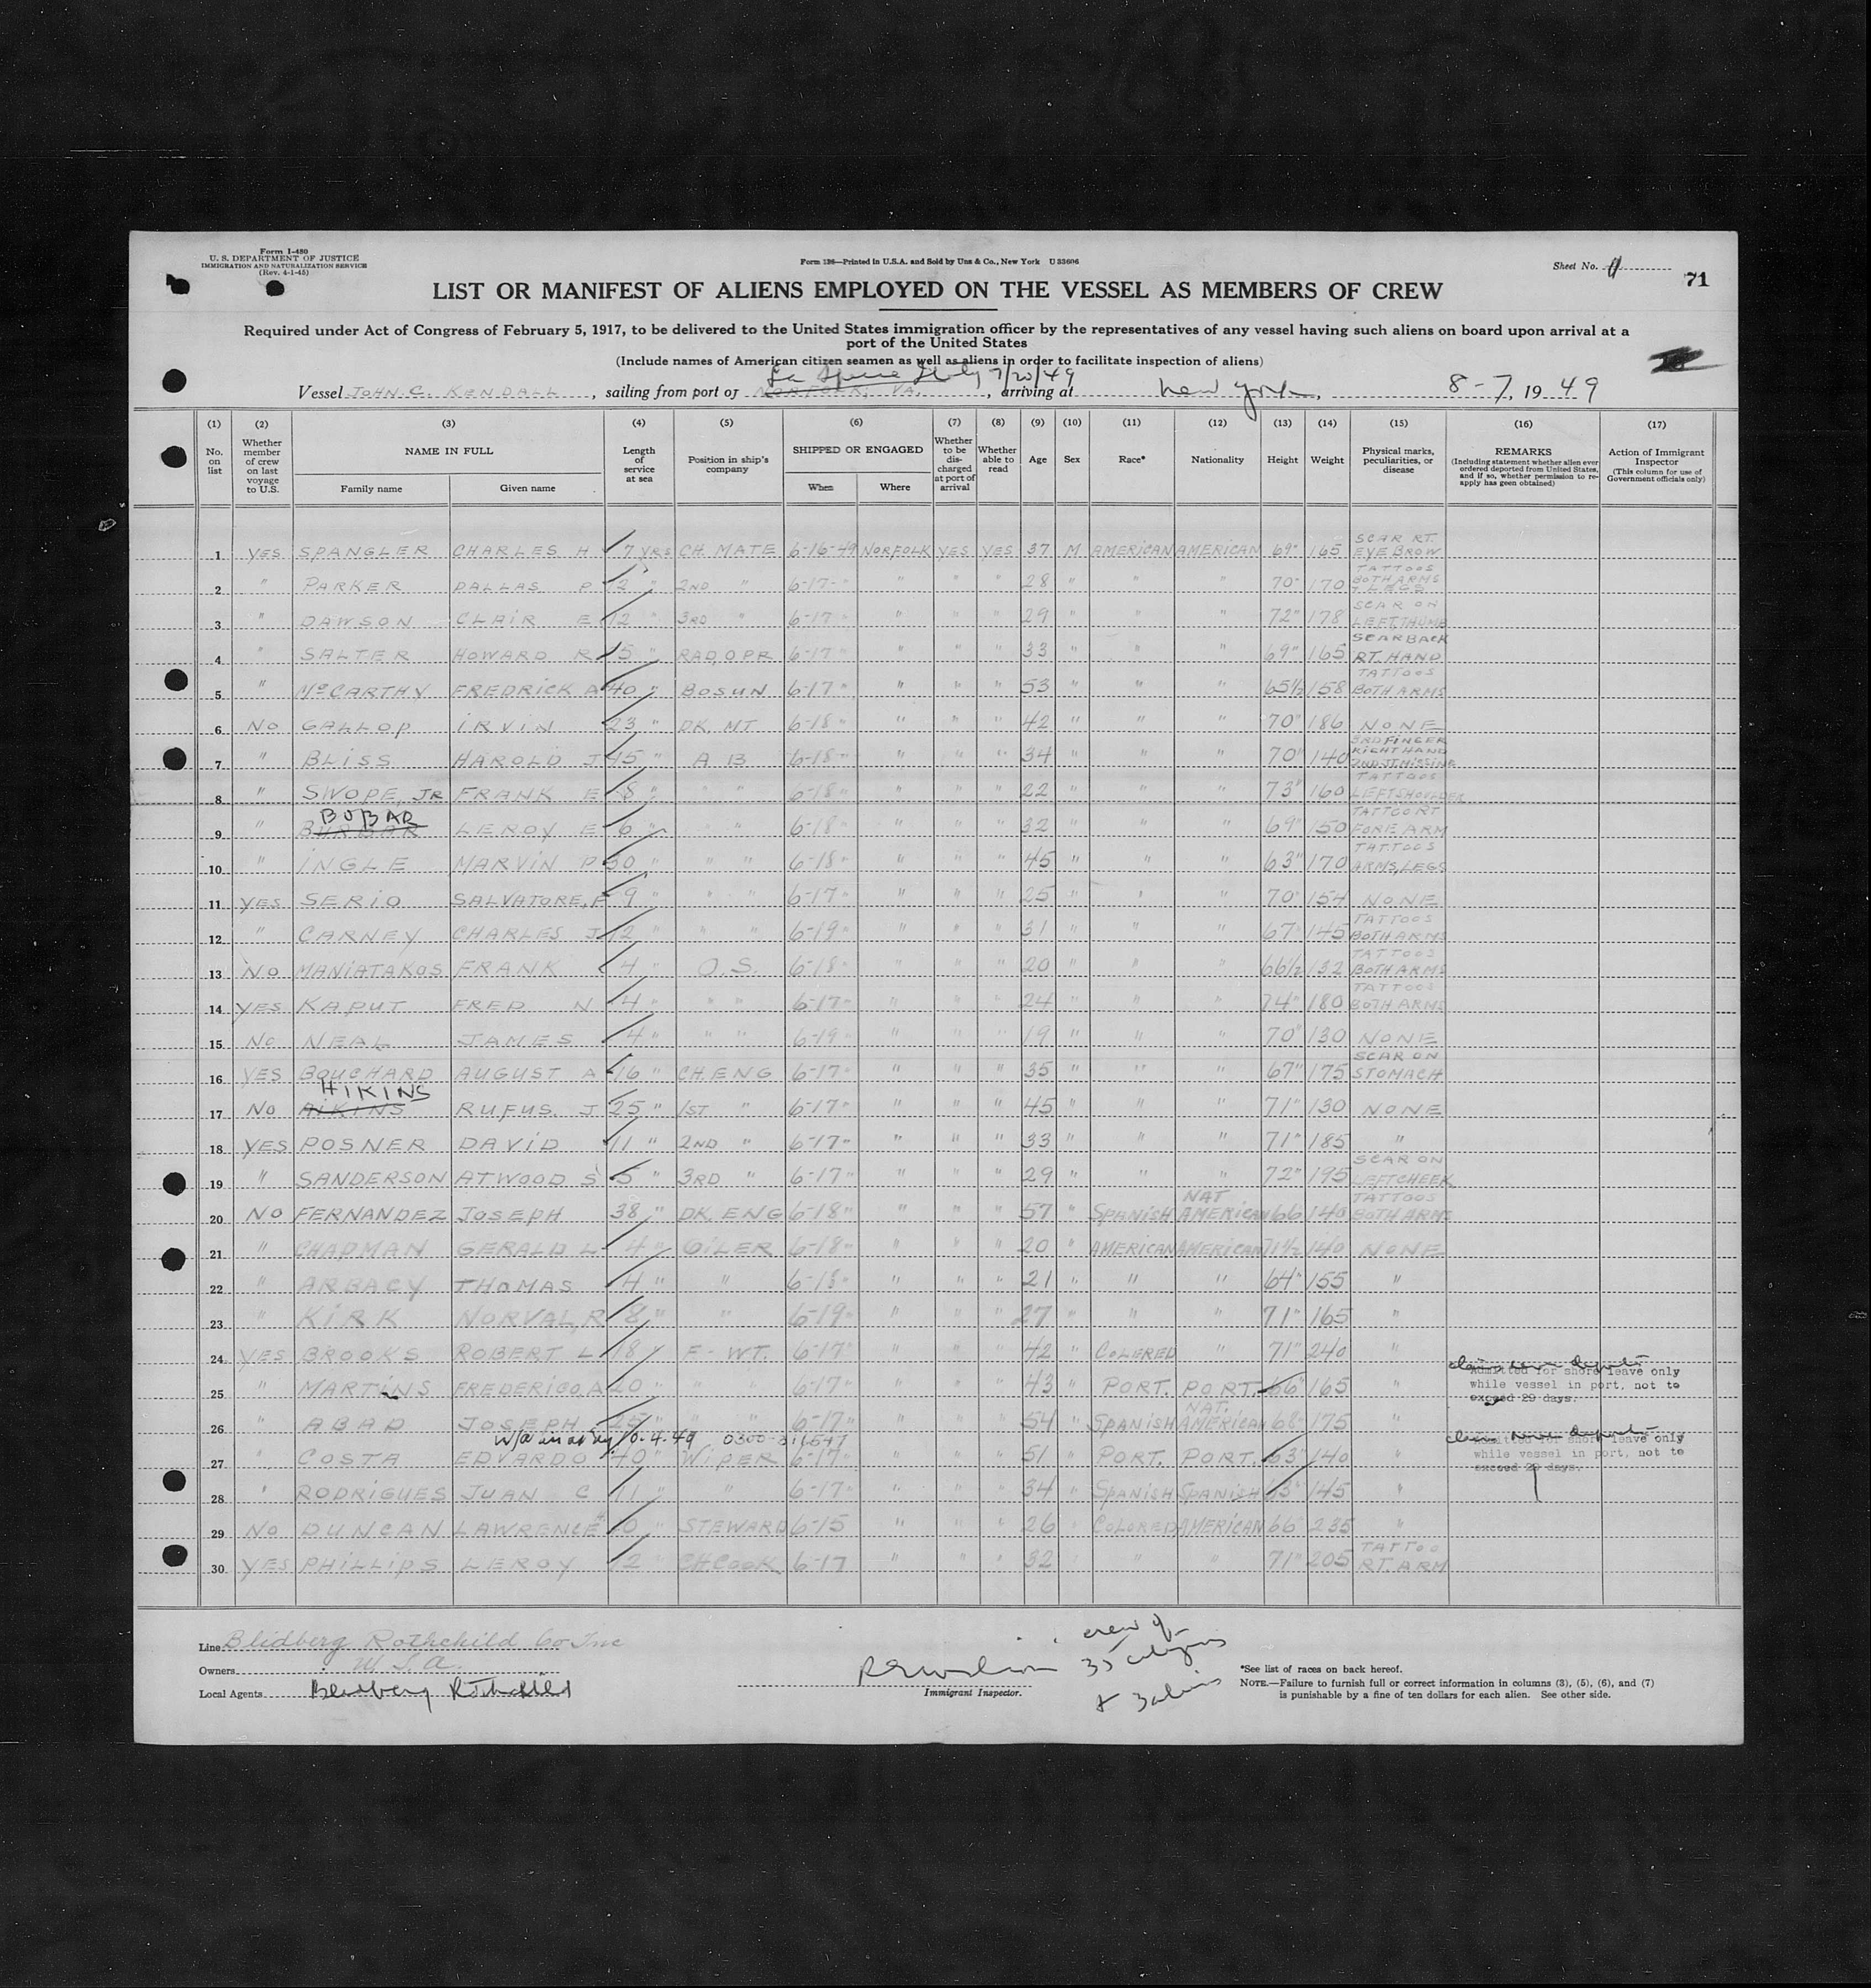 Form I-480
U. S. DEPARTMENT OF JUSTICE
IMMIGRATION AND NATURALIZATION SERVICE
(Rev. 4-1-45)
Form 136—Printed in U.S.A. and Sold by Unz & Co., New York U 33606
Sheet No.
71
LIST OR MANIFEST OF ALIENS EMPLOYED ON THE VESSEL AS MEMBERS OF CREW
Required under Act of Congress of February 5, 1917, to be delivered to the United States immigration officer by the representatives of any vessel having such aliens on board upon arrival at a
port of the United States
(Include names of American citizen seamen as well as aliens in order to facilitate inspection of aliens)
Italy 7/20/49
Vessel JOHN C. KENDALL, sailing from port of NORFOLK, VA., arriving at New York, 8-7, 1949
(1) (2) (3) (4) (5) (6) (7) (8) (9) (10) (11) (12) (13) (14) (15) (16) (17)
No. on list Whether member of crew on last voyage to U.S. NAME IN FULL Family name Given name Length of service at sea Position in ship's company SHIPPED OR ENGAGED When Where Whether to be discharged at port of arrival Whether able to read Age Sex Race* Nationality Height Weight Physical marks, peculiarities, or disease REMARKS (Including statement whether alien ever ordered deported from United States, and if so, whether permission to re-apply has geen obtained) Action of Immigrant Inspector (This column for use of Government officials only)
1 YES SPANGLER CHARLES H 7 YRS CH. MATE 6-16-49 NORFOLK YES YES 37 M AMERICAN AMERICAN 69" 165 SCAR RT. EYE BROW
2 " PARKER DALLAS P 12 " 2ND " 6-17- " " " " 28 " " " 70" 170 TATTOOS BOTH ARMS & LEGS
3 " DAWSON CLAIR E 12 " 3RD " 6-17 " " " " 29 " " " 72" 178 SCAR ON LEFT THUMB
4 " SALTER HOWARD R 15 " RAD. OPR 6-17 " " " " 33 " " " 69" 165 SCAR BACK RT. HAND
5 " McCARTHY FREDRICK A 40 " BOSUN 6-17 " " " " 53 " " " 65½ 158 TATTOOS BOTH ARMS
6 NO GALLOP IRVIN 23 " DK. MT. 6-18 " " " " 42 " " " 70" 186 NONE
7 " BLISS HAROLD J 15 " A B 6-18 " " " " 34 " " " 70" 140 3RD FINGER RIGHT HAND 2ND JT. MISSING
8 " SWOPE, JR FRANK E 8 " " " 6-18 " " " " 22 " " " 73" 160 TATTOOS LEFT SHOULDER
9 " BUBAR LEROY E 6 " " " 6-18 " " " " 32 " " " 69" 150 TATTOO RT FORE ARM
10 " INGLE MARVIN P 30 " " " 6-18 " " " " 45 " " " 63" 170 TATTOOS ARMS, LEGS
11 YES SERIO SALVATORE, F 9 " " " 6-17 " " " " 25 " " " 70" 154 NONE
12 " CARNEY CHARLES J 12 " " " 6-19 " " " " 31 " " " 67" 145 TATTOOS BOTH ARMS
13 NO MANIATAKOS FRANK 4 " O.S. 6-18 " " " " 20 " " " 66½ 132 TATTOOS BOTH ARMS
14 YES KAPUT FRED N 4 " " " 6-17 " " " " 24 " " " 74" 180 TATTOOS BOTH ARMS
15 NO NEAL JAMES 4 " " " 6-19 " " " " 19 " " " 70" 130 NONE
16 YES BOUCHARD AUGUST A 16 " CH. ENG 6-17 " " " " 35 " " " 67" 175 SCAR ON STOMACH
17 NO HIKINS RUFUS J 25 " 1ST " 6-17 " " " " 45 " " " 71" 130 NONE
18 YES POSNER DAVID 11 " 2ND " 6-17 " " " " 33 " " " 71" 185 "
19 " SANDERSON ATWOOD S 5 " 3RD " 6-17 " " " " 29 " " " 72" 195 SCAR ON LEFT CHEEK
20 NO FERNANDEZ JOSEPH 38 " DK. ENG 6-18 " " " " 57 " SPANISH NAT AMERICAN 66" 140 TATTOOS BOTH ARMS
21 " CHAPMAN GERALD L 4 " OILER 6-18 " " " " 20 " AMERICAN AMERICAN 71½ 140 NONE
22 " ARBACY THOMAS 4 " " 6-18 " " " " 21 " " " 64" 155 "
23 " KIRK NORVAL, R 8 " " 6-19 " " " " 27 " " " 71" 165 "
24 YES BROOKS ROBERT L 18 " F-WT. 6-17 " " " " 42 " COLERED " 71" 240 "
25 " MARTINS FREDERICO, A 20 " " " 6-17 " " " " 43 " PORT. PORT. 66" 165 " Admitted for shore leave only while vessel in port, not to exceed 29 days.
26 " ABAD JOSEPH 25 " " " 6-17 " " " " 54 " SPANISH NAT. AMERICAN 68" 175 "
10.4.49 0300-311547
27 " COSTA EDVARDO 40 " WIPER 6-17 " " " " 51 " PORT. PORT. 63" 140 " Admitted for shore leave only while vessel in port, not to exceed 29 days.
28 " RODRIGUES JUAN C 11 " " 6-17 " " " " 34 " SPANISH SPANISH 63" 145 "
29 NO DUNCAN LAWRENCE 10 " STEWARD 6-15 " " " 26 " COLORED AMERICAN 66" 235 "
30 YES PHILLIPS LEROY 12 " CH. COOK 6-17 " " " 32 " " " 71" 205 TATTOO RT. ARM
Line Blidberg Rothchild Co Inc
Owners W.S.A.
Local Agents Blidberg Rothchild
Immigrant Inspector.
crew of
35 citizens
& 3 aliens
*See list of races on back hereof.
NOTE.—Failure to furnish full or correct information in columns (3), (5), (6), and (7)
is punishable by a fine of ten dollars for each alien. See other side.